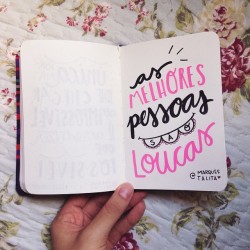 as
MELHORES
pessoas
SÃO
LOUCAS
@MARQUES
TALITA